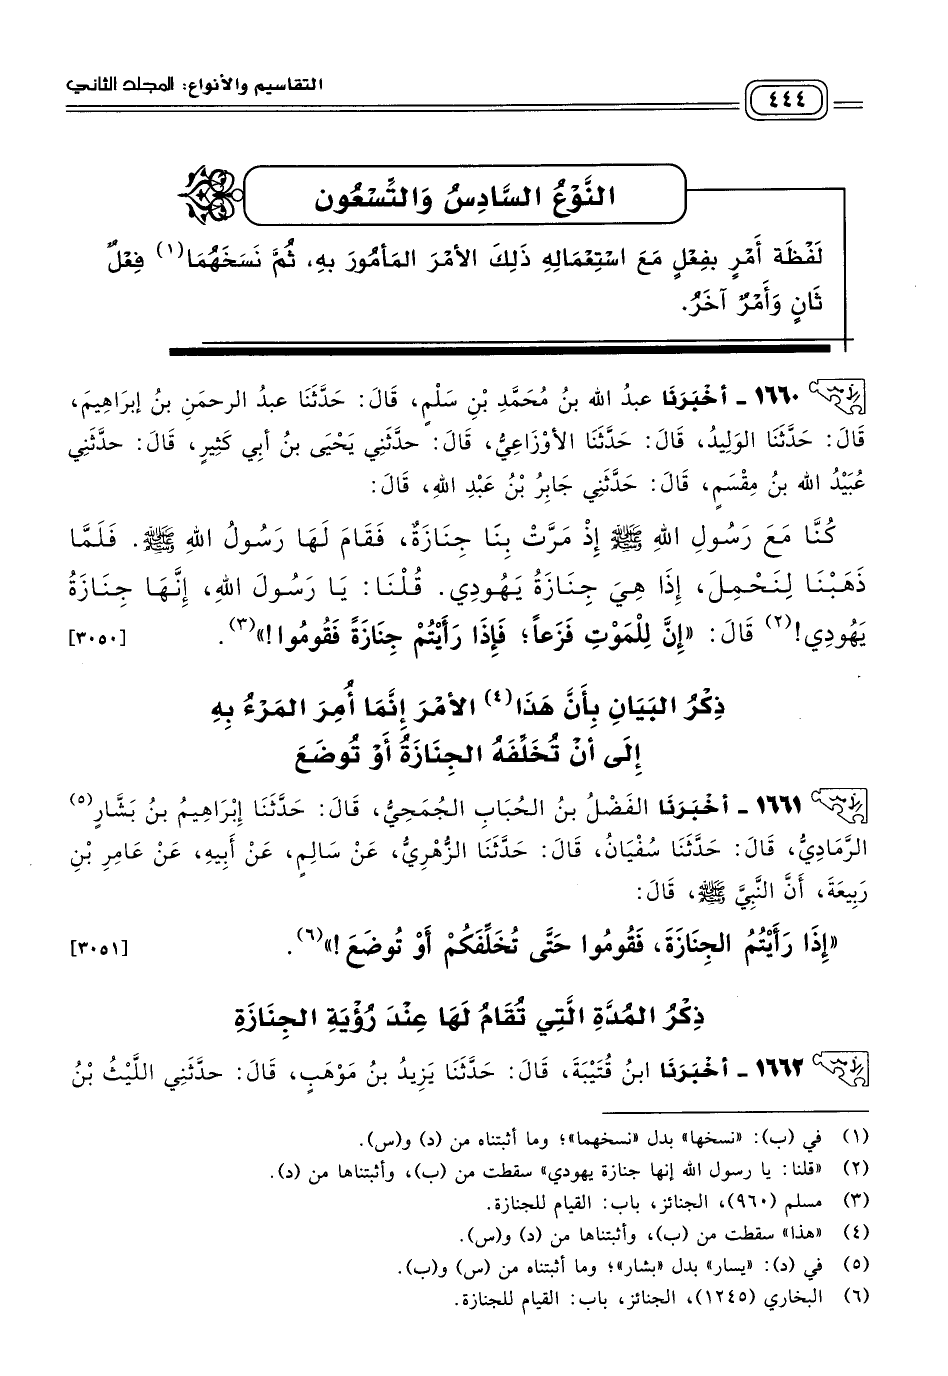 التقاسيم والأنواع: المجلد الثاني
٤٤٤
النَّوْعُ السَّادِسُ وَالتِّسْعُون
لَفْظَة أَمْرٍ بِفِعْلٍ مَعَ اسْتِعْمَالِهِ ذَلِكَ الأمْرَ المَأمُورَ بِهِ، ثُمَّ نَسَخَهُمَا(١) فِعْلٌ
ثَانٍ وَأَمْرٌ آخَرُ.
١٦٦٠ - أخْبَرَنَا عبدُ الله بنُ مُحَمَّدِ بْنِ سَلْمٍ، قَالَ: حَدَّثَنَا عبدُ الرحمَنِ بنُ إبرَاهِيمَ،
قَالَ: حَدَّثَنَا الوَلِيدُ، قَالَ: حَدَّثَنَا الأوْزَاعِيُّ، قَالَ: حدَّثَنِي يَحْيَى بنُ أبي كَثِيرٍ، قَالَ: حدَّثَنِي
عُبَيْدُ الله بنُ مِقْسَمٍ، قَالَ: حَدَّثَنِي جَابِرُ بْنُ عَبْدِ اللهِ، قَالَ:
كُنَّا مَعَ رَسُولِ اللهِ ﷺ إذْ مَرَّتْ بِنَا جِنَازَةٌ، فَقَامَ لَهَا رَسُولُ اللهِ ﷺ. فَلَمَّا
ذَهَبْنَا لِنَحْمِلَ، إذَا هِيَ جِنَازَةُ يَهُودِي. قُلْنَا: يَا رَسُولَ اللهِ، إنَّهَا جِنَازَةُ
يَهُودِي!(٢) قَالَ: «إنَّ لِلْمَوْتِ فَزَعاً؛ فَإذَا رَأيْتُمْ جِنَازَةً فَقُومُوا!»(٣). [٣٠٥٠]
ذِكْرُ البَيَانِ بِأَنَّ هَذَا(٤) الأمْرَ إنَّمَا أُمِرَ المَرْءُ بِهِ
إلَى أنْ تُخَلِّفَهُ الجِنَازَةُ أوْ تُوضَعَ
١٦٦١ - أخْبَرَنَا الفَضْلُ بنُ الحُبَابِ الجُمَحِيُّ، قَالَ: حَدَّثَنَا إبْرَاهِيمُ بنُ بَشَّارٍ(٥)
الرَّمَادِيُّ، قَالَ: حَدَّثَنَا سُفْيَانُ، قَالَ: حَدَّثَنَا الزُّهْرِيُّ، عَنْ سَالِمٍ، عَنْ أَبِيهِ، عَنْ عَامِرِ بْنِ
رَبِيعَةَ، أَنَّ النَّبِيَّ ﷺ، قَالَ:
«إذَا رَأَيْتُمُ الجِنَازَةَ، فَقُومُوا حَتَّى تُخَلِّفَكُمْ أوْ تُوضَعَ!»(٦). [٣٠٥١]
ذِكْرُ المُدَّةِ الَّتِي تُقَامُ لَهَا عِنْدَ رُؤْيَةِ الجِنَازَةِ
١٦٦٢ - أخْبَرَنَا ابنُ قُتَيْبَةَ، قَالَ: حَدَّثَنَا يَزِيدُ بنُ مَوْهَبٍ، قَالَ: حدَّثَنِي اللَّيْثُ بْنُ
(١) في (ب): «نسخها» بدل «نسخهما»؛ وما أثبتناه من (د) و(س).
(٢) «قلنا: يا رسول الله إنها جنازة يهودي» سقطت من (ب)، وأثبتناها من (د).
(٣) مسلم (٩٦٠)، الجنائز، باب: القيام للجنازة.
(٤) «هذا» سقطت من (ب)، وأثبتناها من (د) و(س).
(٥) في (د): «يسار» بدل «بشار»؛ وما أثبتناه من (س) و(ب).
(٦) البخاري (١٢٤٥)، الجنائز، باب: القيام للجنازة.